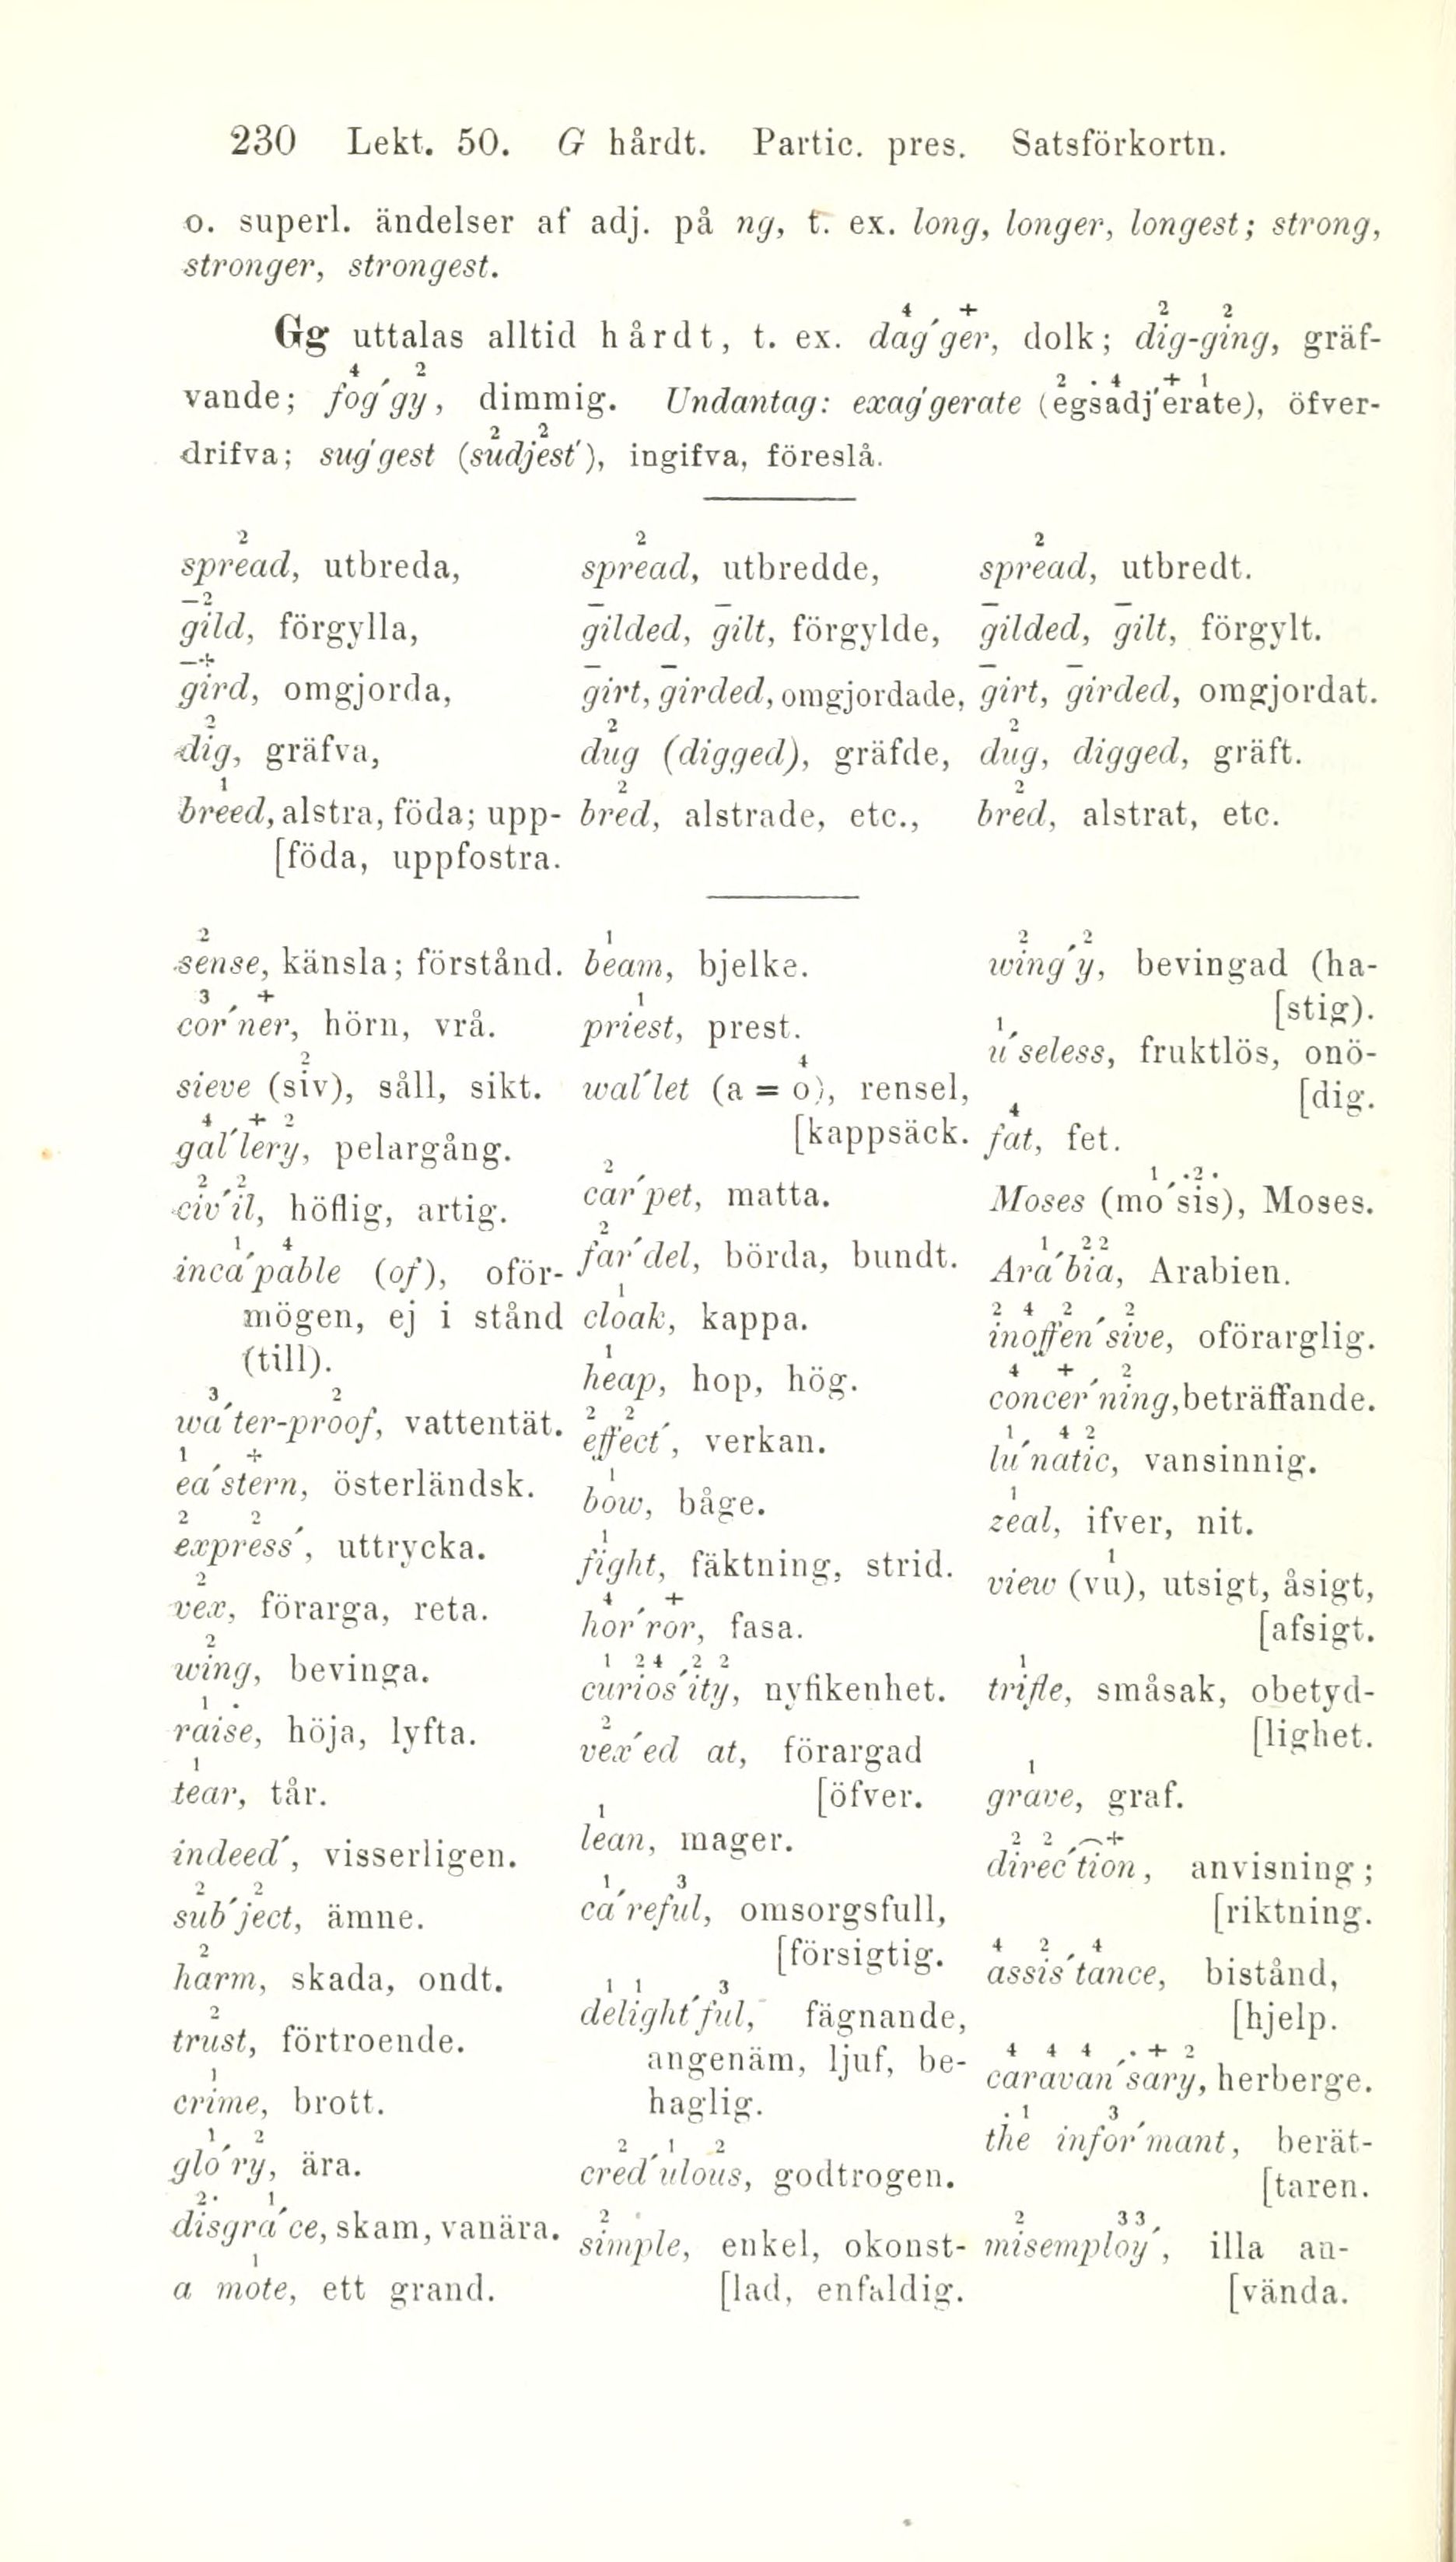 230 Lekt. 50. G hårdt. Partic. pres. Satsförkortn.
o. superl. ändelser af adj. på ng, t. ex. long, longer, longest; strong,
stronger, strongest.
Gg uttalas alltid hårdt, t. ex. dag'ger, dolk; dig-ging, gräf-
vande; fog'gy, dimmig. Undantag: exag'gerate (egsadj'erate), öfver-
drifva; sug'gest (sudjest'), ingifva, föreslå.
spread, utbreda, spread, utbredde, spread, utbredt.
gild, förgylla, gilded, gilt, förgylde, gilded, gilt, förgylt.
gird, omgjorda, girt, girded, omgjordade, girt, girded, omgjordat.
dig, gräfva, dug (digged), gräfde, dug, digged, gräft.
breed, alstra, föda; upp- bred, alstrade, etc., bred, alstrat, etc.
[föda, uppfostra.
sense, känsla; förstånd.
cor'ner, hörn, vrå.
sieve (siv), såll, sikt.
gal'lery, pelargång.
civ'il, höflig, artig.
inca'pable (of), oför-
mögen, ej i stånd
(till).
wa'ter-proof, vattentät.
ea'stern, österländsk.
express', uttrycka.
vex, förarga, reta.
wing, bevinga.
raise, höja, lyfta.
tear, tår.
indeed', visserligen.
sub'ject, ämne.
harm, skada, ondt.
trust, förtroende.
crime, brott.
glo'ry, ära.
disgra'ce, skam, vanära.
a mote, ett grand.
beam, bjelke.
priest, prest.
wal'let (a = o), rensel,
[kappsäck.
car'pet, matta.
far'del, börda, bundt.
cloak, kappa.
heap, hop, hög.
effect', verkan.
bow, båge.
fight, fäktning, strid.
hor'ror, fasa.
curios'ity, nyfikenhet.
vex'ed at, förargad
[öfver.
lean, mager.
ca'reful, omsorgsfull,
[försigtig.
delight'ful, fägnande,
angenäm, ljuf, be-
haglig.
cred'ulous, godtrogen.
simple, enkel, okonst-
[lad, enfaldig.
wing'y, bevingad (ha-
[stig).
u'seless, fruktlös, onö-
[dig.
fat, fet.
Moses (mo'sis), Moses.
Ara'bia, Arabien.
inoffen'sive, oförarglig.
concer'ning, beträffande.
lu'natic, vansinnig.
zeal, ifver, nit.
view (vu), utsigt, åsigt,
[afsigt.
trifle, småsak, obetyd-
[lighet.
grave, graf.
direc'tion, anvisning;
[riktning.
assis'tance, bistånd,
[hjelp.
caravan'sary, herberge.
the infor'mant, berät-
[taren.
misemploy', illa an-
[vända.